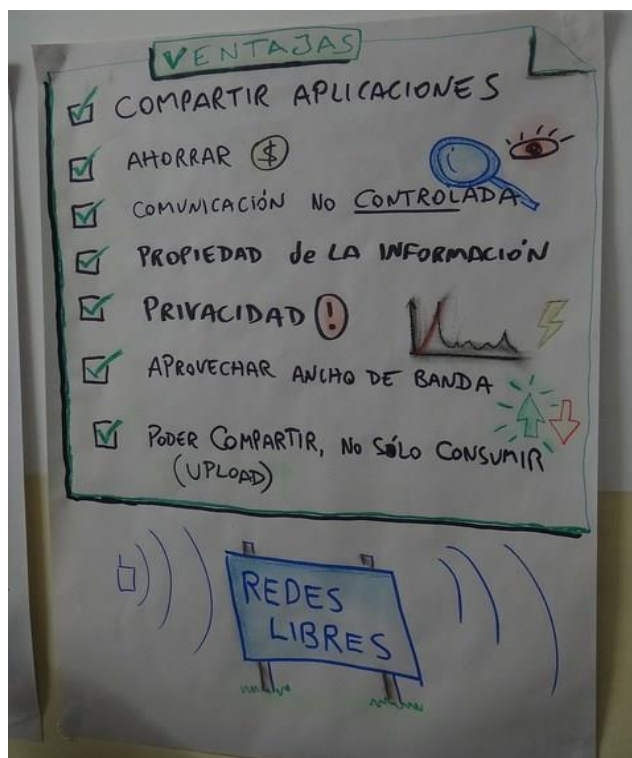 VENTAJAS
COMPARTIR APLICACIONES
AHORRAR $
COMUNICACIÓN NO CONTROLADA
PROPIEDAD de LA INFORMACIÓN
PRIVACIDAD !
APROVECHAR ANCHO DE BANDA
PODER COMPARTIR, NO SÓLO CONSUMIR
(UPLOAD)
REDES
LIBRES